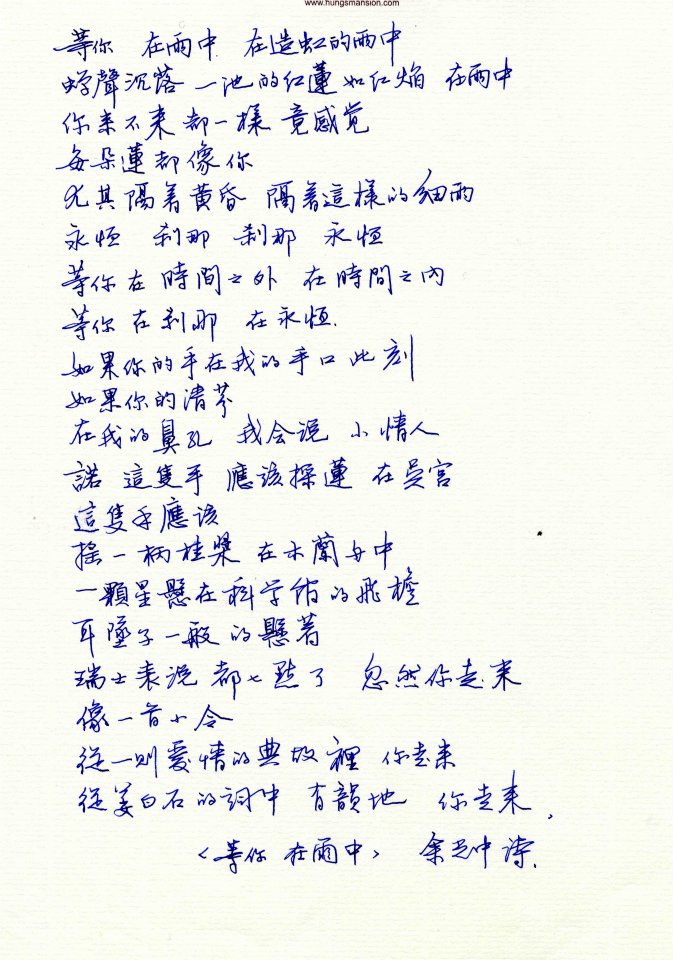 www.hungsmansion.com
等你 在雨中 在造虹的雨中
蟬聲沉落 一池的红蓮如红焰 在雨中
你来不来都一樣 竟感觉
每朵蓮都像你
尤其隔著黄昏 隔著這樣的细雨
永恒 刹那 刹那 永恒
等你在時間之外 在時間之內
等你在刹那 在永恒.
如果你的手在我的手口此刻
如果你的清芬
在我的鼻孔 我会说 小情人
諾 這隻手 應该採蓮 在吴宫
這隻手應该
摇一柄桂槳 在木蘭舟中
一顆星懸在科学馆的飛檐
耳墜子一般的懸著
瑞士表说都七點了 忽然你走来
像一首小令
從一则愛情的典故裡 你走来
從姜白石的詞中 有韻地 你走来,
<等你 在雨中> 余光中诗.